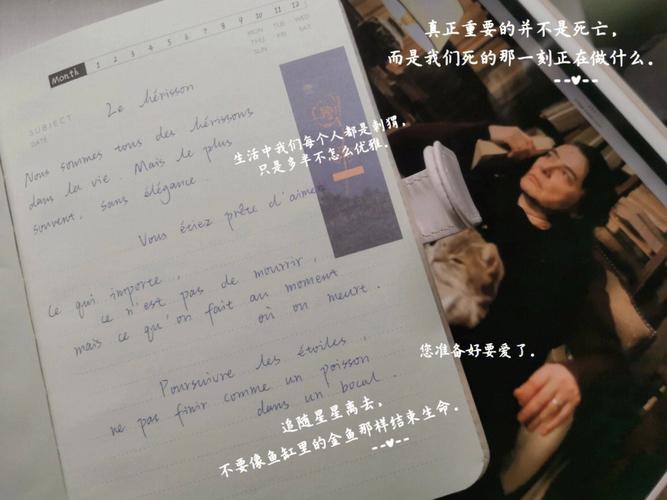 Month 1 2 3 4 5 6 7 8 9 10 11 12
MON TUE WED
THU FRI SAT
SUN
SUBJECT
DATE
Le hérisson
Nous sommes tous des hérissons
dans la vie. Mais le plus
souvent, sans élégance.
Vous étiez prête d'aimer
Ce qui importe,
ce n'est pas de mourrir,
mais ce qu'on fait au moment
où on meurt.
Poursuivre les étoiles,
ne pas finir comme un poisson
dans un bocal.
真正重要的并不是死亡，
而是我们死的那一刻正在做什么。
生活中我们每个人都是刺猬，
只是多半不怎么优雅。
您准备好要爱了。
追随星星离去，
不要像鱼缸里的金鱼那样结束生命。